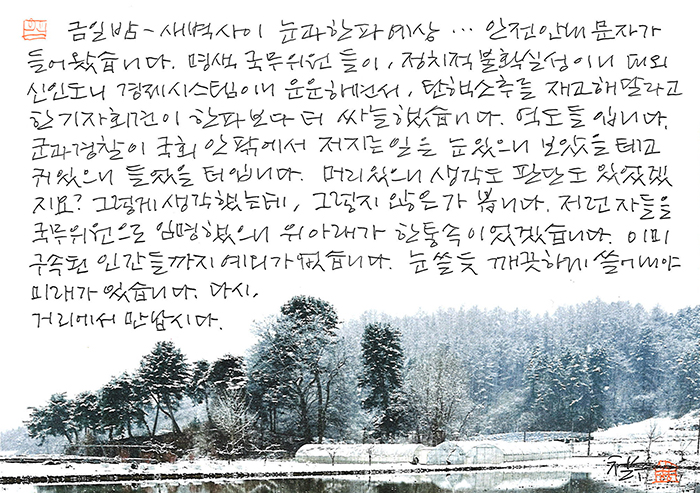 금일밤-새벽사이 눈과한파예상 … 안전안내문자가
들어왔습니다. 명색 국무위원 들이, 정치적불확실성이니 대외
신인도니 경제시스템이니 운운하면서, 탄핵소추를 재고해달라고
한기자회견이 한파보다 더 싸늘했습니다. 역도들입니다.
군과경찰이 국회 안팎에서 저지른일을 눈있으니 보았을테고
귀있으니 들었을 터입니다. 머리있으니 생각도 판단도 있었겠
지요? 그렇게 생각했는데, 그렇지 않은가 봅니다. 저런 자들을
국무위원으로 임명했으니 위아래가 한통속이었겠습니다. 이미
구속된 인간들까지 예외가없습니다. 눈 쓸듯 깨끗하게 쓸어내야
미래가 있습니다. 다시,
거리에서 만납시다.